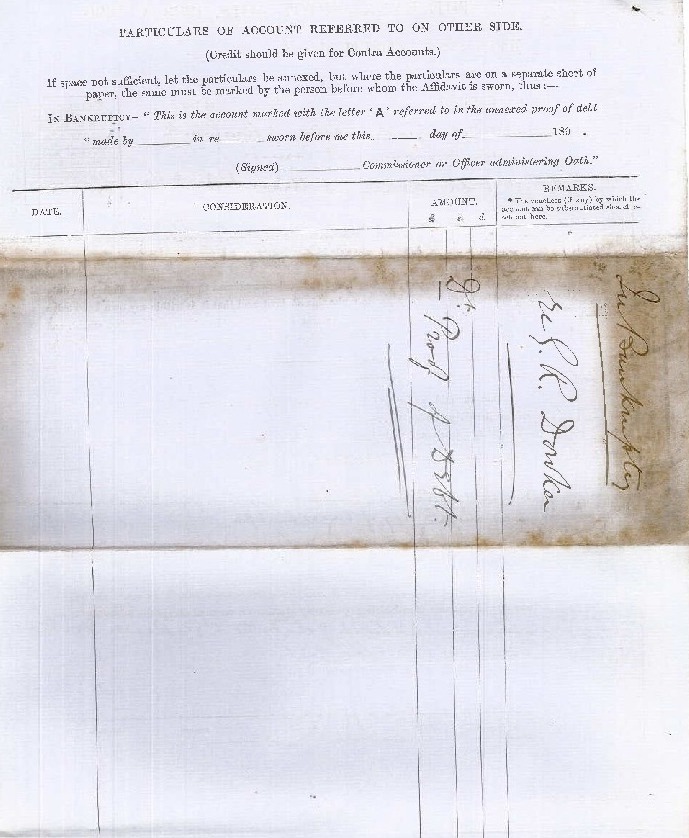 PARTICULARS OF ACCOUNT REFERRED TO ON OTHER SIDE.
(Credit should be given for Contra Accounts.)
If space not sufficient, let the particulars be annexed, but where the particulars are on a separate sheet of
paper, the same must be marked by the person before whom the Affidavit is sworn, thus:—
IN BANKRUPTCY— “This is the account marked with the letter ‘A’ referred to in the annexed proof of debt
“made by ______ in re ______ sworn before me this ______ day of ______ 189 .
(Signed) ______ Commissioner or Officer administering Oath.”
DATE.
CONSIDERATION.
AMOUNT.
£ s. d.
REMARKS.
* The vouchers (if any) by which the
account can be substantiated should be
set out here.
In Bankruptcy
re R. Donker
Proof of Debt.